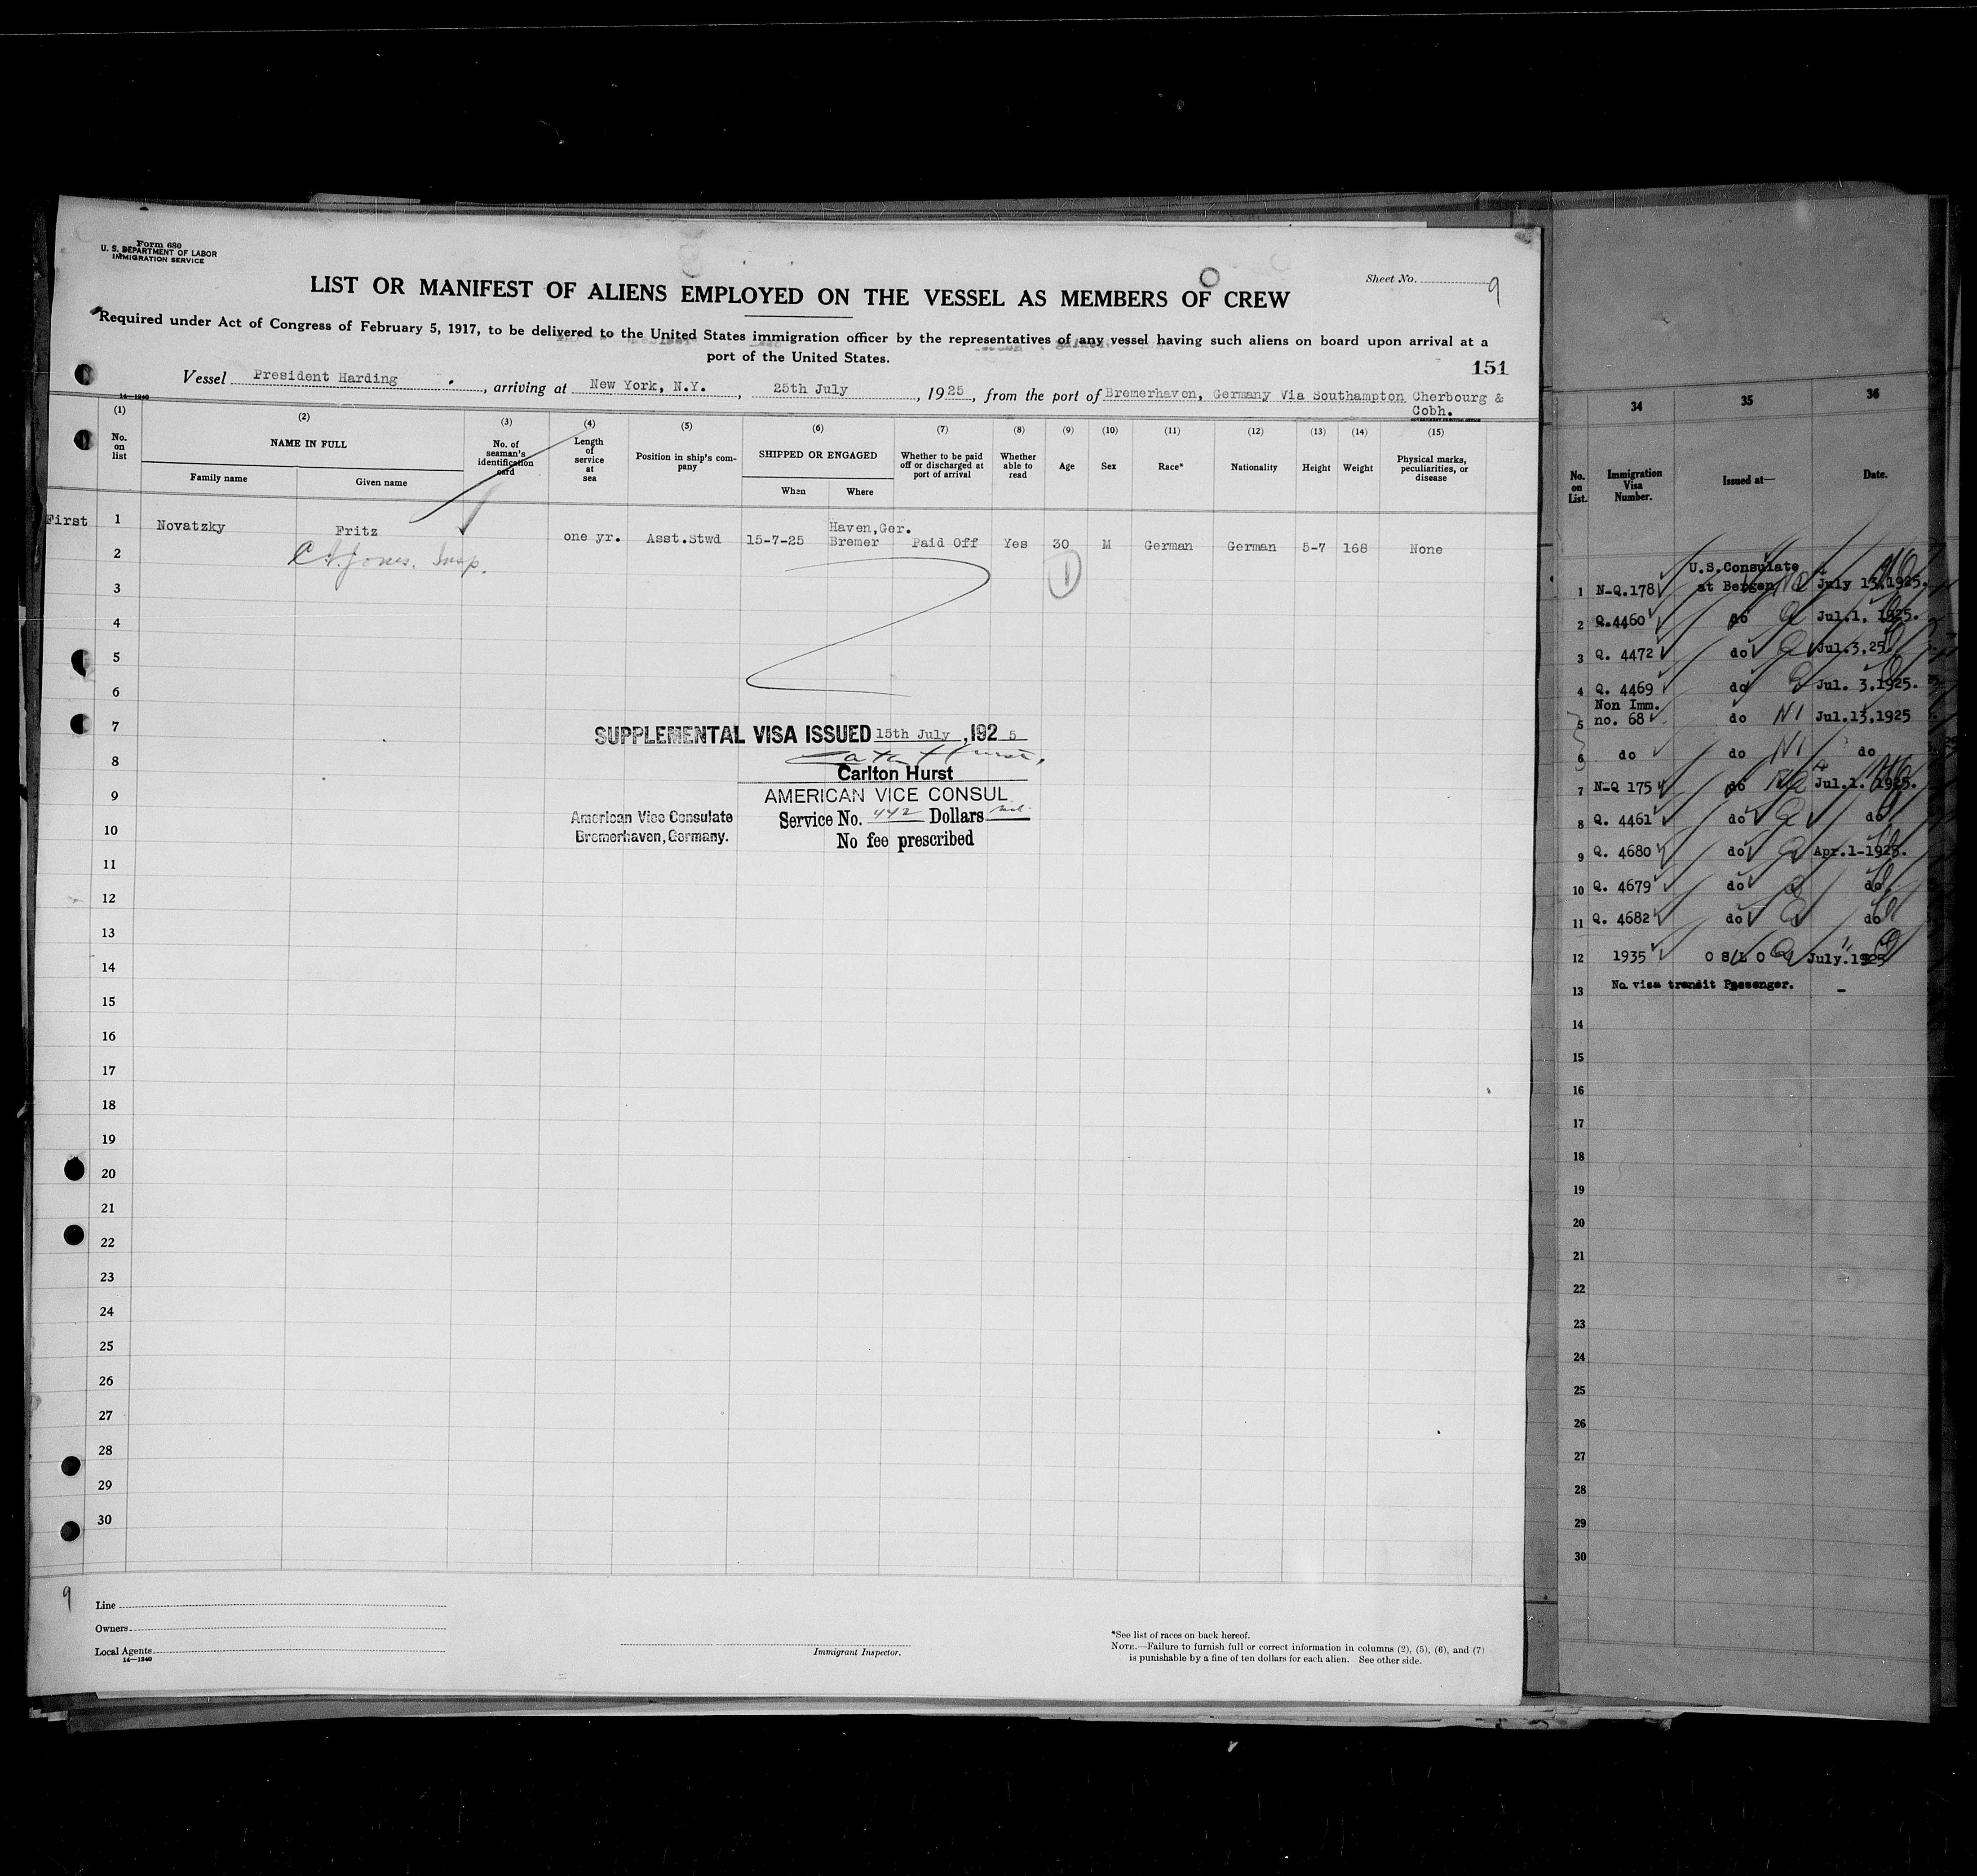 Form 680
U. S. DEPARTMENT OF LABOR
IMMIGRATION SERVICE
Sheet No. 9
LIST OR MANIFEST OF ALIENS EMPLOYED ON THE VESSEL AS MEMBERS OF CREW
Required under Act of Congress of February 5, 1917, to be delivered to the United States immigration officer by the representatives of any vessel having such aliens on board upon arrival at a
port of the United States.
151
Vessel President Harding, arriving at New York, N.Y., 25th July, 1925, from the port of Bremerhaven, Germany Via Southampton Cherbourg &
Cobh.
14—1240
(1) (2) (3) (4) (5) (6) (7) (8) (9) (10) (11) (12) (13) (14) (15)
No. on list
NAME IN FULL
Family name
Given name
No. of seaman's identification card
Length of service at sea
Position in ship's company
SHIPPED OR ENGAGED
When
Where
Whether to be paid off or discharged at port of arrival
Whether able to read
Age
Sex
Race*
Nationality
Height
Weight
Physical marks, peculiarities, or disease
First 1 Novatzky Fritz one yr. Asst.Stwd 15-7-25 Haven,Ger. Bremer Paid Off Yes 30 M German German 5-7 168 None
2 Jones. Insp. 1
3
4
5
6
7
SUPPLEMENTAL VISA ISSUED 15th July, 1925
8
Carlton Hurst
9
AMERICAN VICE CONSUL
American Vice Consulate
Service No. 442 Dollars
10
Bremerhaven, Germany.
No fee prescribed
11
12
13
14
15
16
17
18
19
20
21
22
23
24
25
26
27
28
29
30
9
Line
Owners
Local Agents
14—1240
Immigrant Inspector.
*See list of races on back hereof.
NOTE.—Failure to furnish full or correct information in columns (2), (5), (6), and (7)
is punishable by a fine of ten dollars for each alien. See other side.
34 35 36
No. on List.
Immigration Visa Number.
Issued at—
Date.
U.S.Consulate
1 N-Q.178 at Bergen July 13,1925.
2 Q.4460 do Q Jul.1, 1925.
3 Q. 4472 do Q Jul.3,25
4 Q. 4469 do Q Jul. 3,1925.
Non Imm.
5 no. 68 do NI Jul.13,1925
6 do do NI do
7 N-Q 175 do Jul.1. 1925.
8 Q. 4461 do Q do
9 Q. 4680 do Q Apr.1-1925.
10 Q. 4679 do Q do
11 Q. 4682 do Q do
12 1935 OSLO Q July.1925
13 No visa transit Passenger. -
14
15
16
17
18
19
20
21
22
23
24
25
26
27
28
29
30